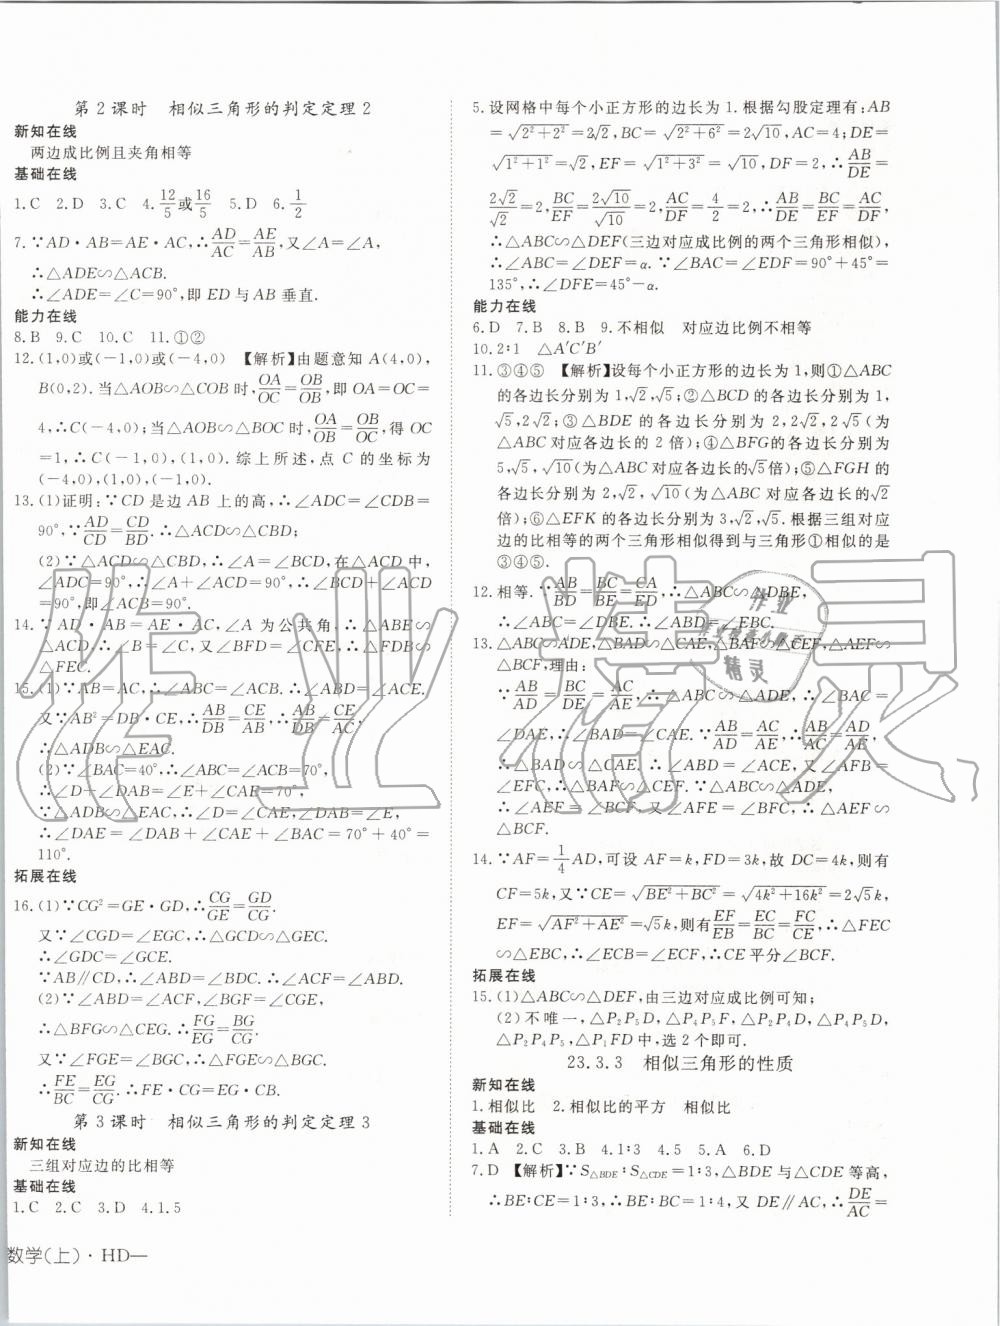 第2课时　相似三角形的判定定理2
新知在线
两边成比例且夹角相等
基础在线
1.C　2.D　3.C　4.12/5或16/5　5.D　6.1/2
7.∵AD·AB=AE·AC,∴AD/AC=AE/AB,又∠A=∠A,
∴△ADE∽△ACB.
∴∠ADE=∠C=90°,即ED与AB垂直.
能力在线
8.B　9.C　10.C　11.①②
12.(1,0)或(-1,0)或(-4,0)　【解析】由题意知A(4,0),
B(0,2).当△AOB∽△COB时,OA/OC=OB/OB,即OA=OC=
4,∴C(-4,0);当△AOB∽△BOC时,OA/OB=OB/OC,得OC
=1,∴C(-1,0),(1,0).综上所述,点C的坐标为
(-4,0),(1,0),(-1,0).
13.(1)证明:∵CD是边AB上的高,∴∠ADC=∠CDB=
90°,∵AD/CD=CD/BD.∴△ACD∽△CBD;
(2)∵△ACD∽△CBD,∴∠A=∠BCD,在△ACD中,
∠ADC=90°,∴∠A+∠ACD=90°,∴∠BCD+∠ACD
=90°,即∠ACB=90°.
14.∵AD·AB=AE·AC,∠A为公共角.∴△ABE∽
△ACD,∴∠B=∠C,又∠BFD=∠CFE,∴△FDB∽
△FEC.
15.(1)∵AB=AC,∴∠ABC=∠ACB.∴∠ABD=∠ACE.
又∵AB²=DB·CE,∴AB/DB=CE/AB,∴AB/DB=CE/AC,
∴△ADB∽△EAC.
(2)∵∠BAC=40°,∴∠ABC=∠ACB=70°,
∴∠D+∠DAB=∠E+∠CAE=70°,
∵△ADB∽△EAC,∴∠D=∠CAE,∠DAB=∠E,
∴∠DAE=∠DAB+∠CAE+∠BAC=70°+40°=
110°.
拓展在线
16.(1)∵CG²=GE·GD,∴CG/GE=GD/CG.
又∵∠CGD=∠EGC,∴△GCD∽△GEC.
∴∠GDC=∠GCE.
∵AB∥CD,∴∠ABD=∠BDC.∴∠ACF=∠ABD.
(2)∵∠ABD=∠ACF,∠BGF=∠CGE,
∴△BFG∽△CEG.∴FG/EG=BG/CG.
又∵∠FGE=∠BGC,∴△FGE∽△BGC.
∴FE/BC=EG/CG.∴FE·CG=EG·CB.
第3课时　相似三角形的判定定理3
新知在线
三组对应边的比相等
基础在线
1.C　2.C　3.D　4.1.5
数学(上)·HD—
5.设网格中每个小正方形的边长为1.根据勾股定理有:AB
=√(2²+2²)=2√2,BC=√(2²+6²)=2√10,AC=4;DE=
√(1²+1²)=√2,EF=√(1²+3²)=√10,DF=2,∴AB/DE=
2√2/√2=2,BC/EF=2√10/√10=2,AC/DF=4/2=2,∴AB/DE=BC/EF=AC/DF,
∴△ABC∽△DEF(三边对应成比例的两个三角形相似),
∴∠ABC=∠DEF=α.∵∠BAC=∠EDF=90°+45°=
135°,∴∠DFE=45°-α.
能力在线
6.D　7.B　8.B　9.不相似　对应边比例不相等
10.2∶1　△A′C′B′
11.③④⑤　【解析】设每个小正方形的边长为1,则①△ABC
的各边长分别为1,√2,√5;②△BCD的各边长分别为1,
√5,2√2;③△BDE的各边长分别为2,2√2,2√5(为
△ABC对应各边长的2倍);④△BFG的各边长分别为
5,√5,√10(为△ABC对应各边长的√5倍);⑤△FGH的
各边长分别为2,√2,√10(为△ABC对应各边长的√2
倍);⑥△EFK的各边长分别为3,√2,√5.根据三组对应
边的比相等的两个三角形相似得到与三角形①相似的是
③④⑤.
12.相等.∵AB/BD=BC/BE=CA/ED,∴△ABC∽△DBE,
∴∠ABC=∠DBE.∴∠ABD=∠EBC.
13.△ABC∽△ADE,△BAD∽△CAE,△BAF∽△CEF,△AEF∽
△BCF,理由:
∵AB/AD=BC/DE=AC/AE,∴△ABC∽△ADE,∴∠BAC=
∠DAE,∴∠BAD=∠CAE.又∵AB/AD=AC/AE,∴AB/AC=AD/AE,
∴△BAD∽△CAE.∴∠ABD=∠ACE,又∠AFB=
∠EFC,∴△BAF∽△CEF.∵△ABC∽△ADE,
∴∠AEF=∠BCF,又∠AFE=∠BFC,∴△AEF∽
△BCF.
14.∵AF=1/4AD,可设AF=k,FD=3k,故DC=4k,则有
CF=5k,又∵CE=√(BE²+BC²)=√(4k²+16k²)=2√5k,
EF=√(AF²+AE²)=√5k,则有EF/EB=EC/BC=FC/CE,∴△FEC
∽△EBC,∴∠ECB=∠ECF,∴CE平分∠BCF.
拓展在线
15.(1)△ABC∽△DEF,由三边对应成比例可知;
(2)不唯一,△P₂P₅D,△P₄P₅F,△P₂P₄D,△P₄P₅D,
△P₂P₄P₅,△P₁FD中,选2个即可.
23.3.3　相似三角形的性质
新知在线
1.相似比　2.相似比的平方　相似比
基础在线
1.A　2.C　3.B　4.1∶3　4.5　5.A　6.D
7.D　【解析】∵S△BDE∶S△CDE=1∶3,△BDE与△CDE等高,
∴BE∶CE=1∶3,∴BE∶BC=1∶4,又DE∥AC,∴DE/AC=
作业精灵
作业
精灵